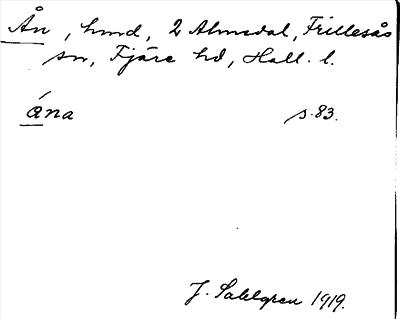 Ån, hmd, 2 Almedal, Frillesås
sn, Fjäre hd, Hall. l.
ána s. 83.
J. Sahlgren 1919.